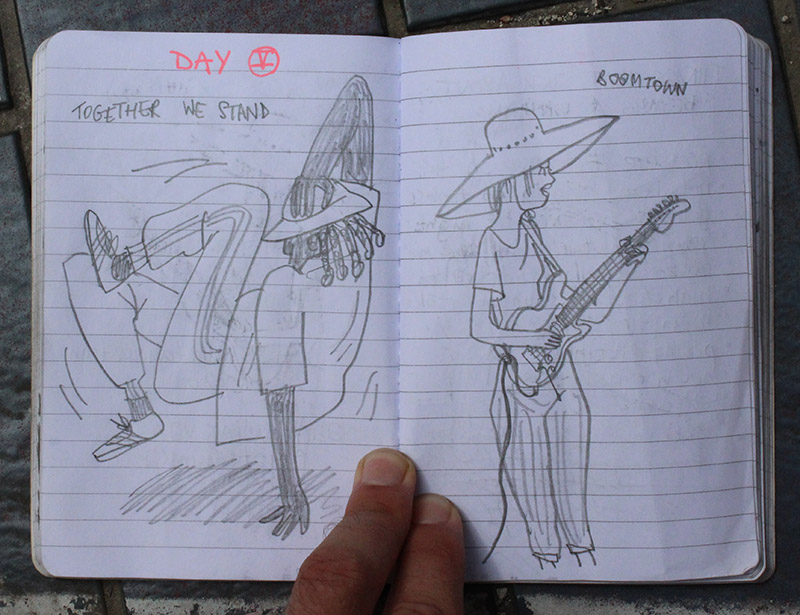 DAY V
TOGETHER WE STAND
BOOMTOWN